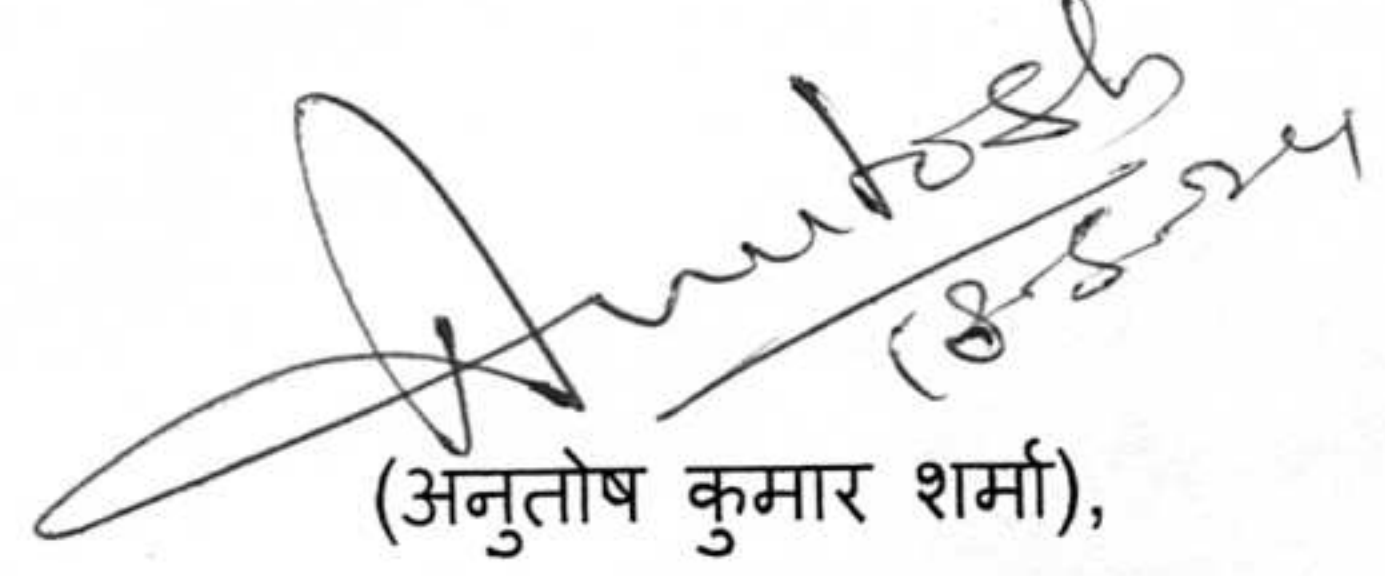 Anutosh
(अनुतोष कुमार शर्मा),